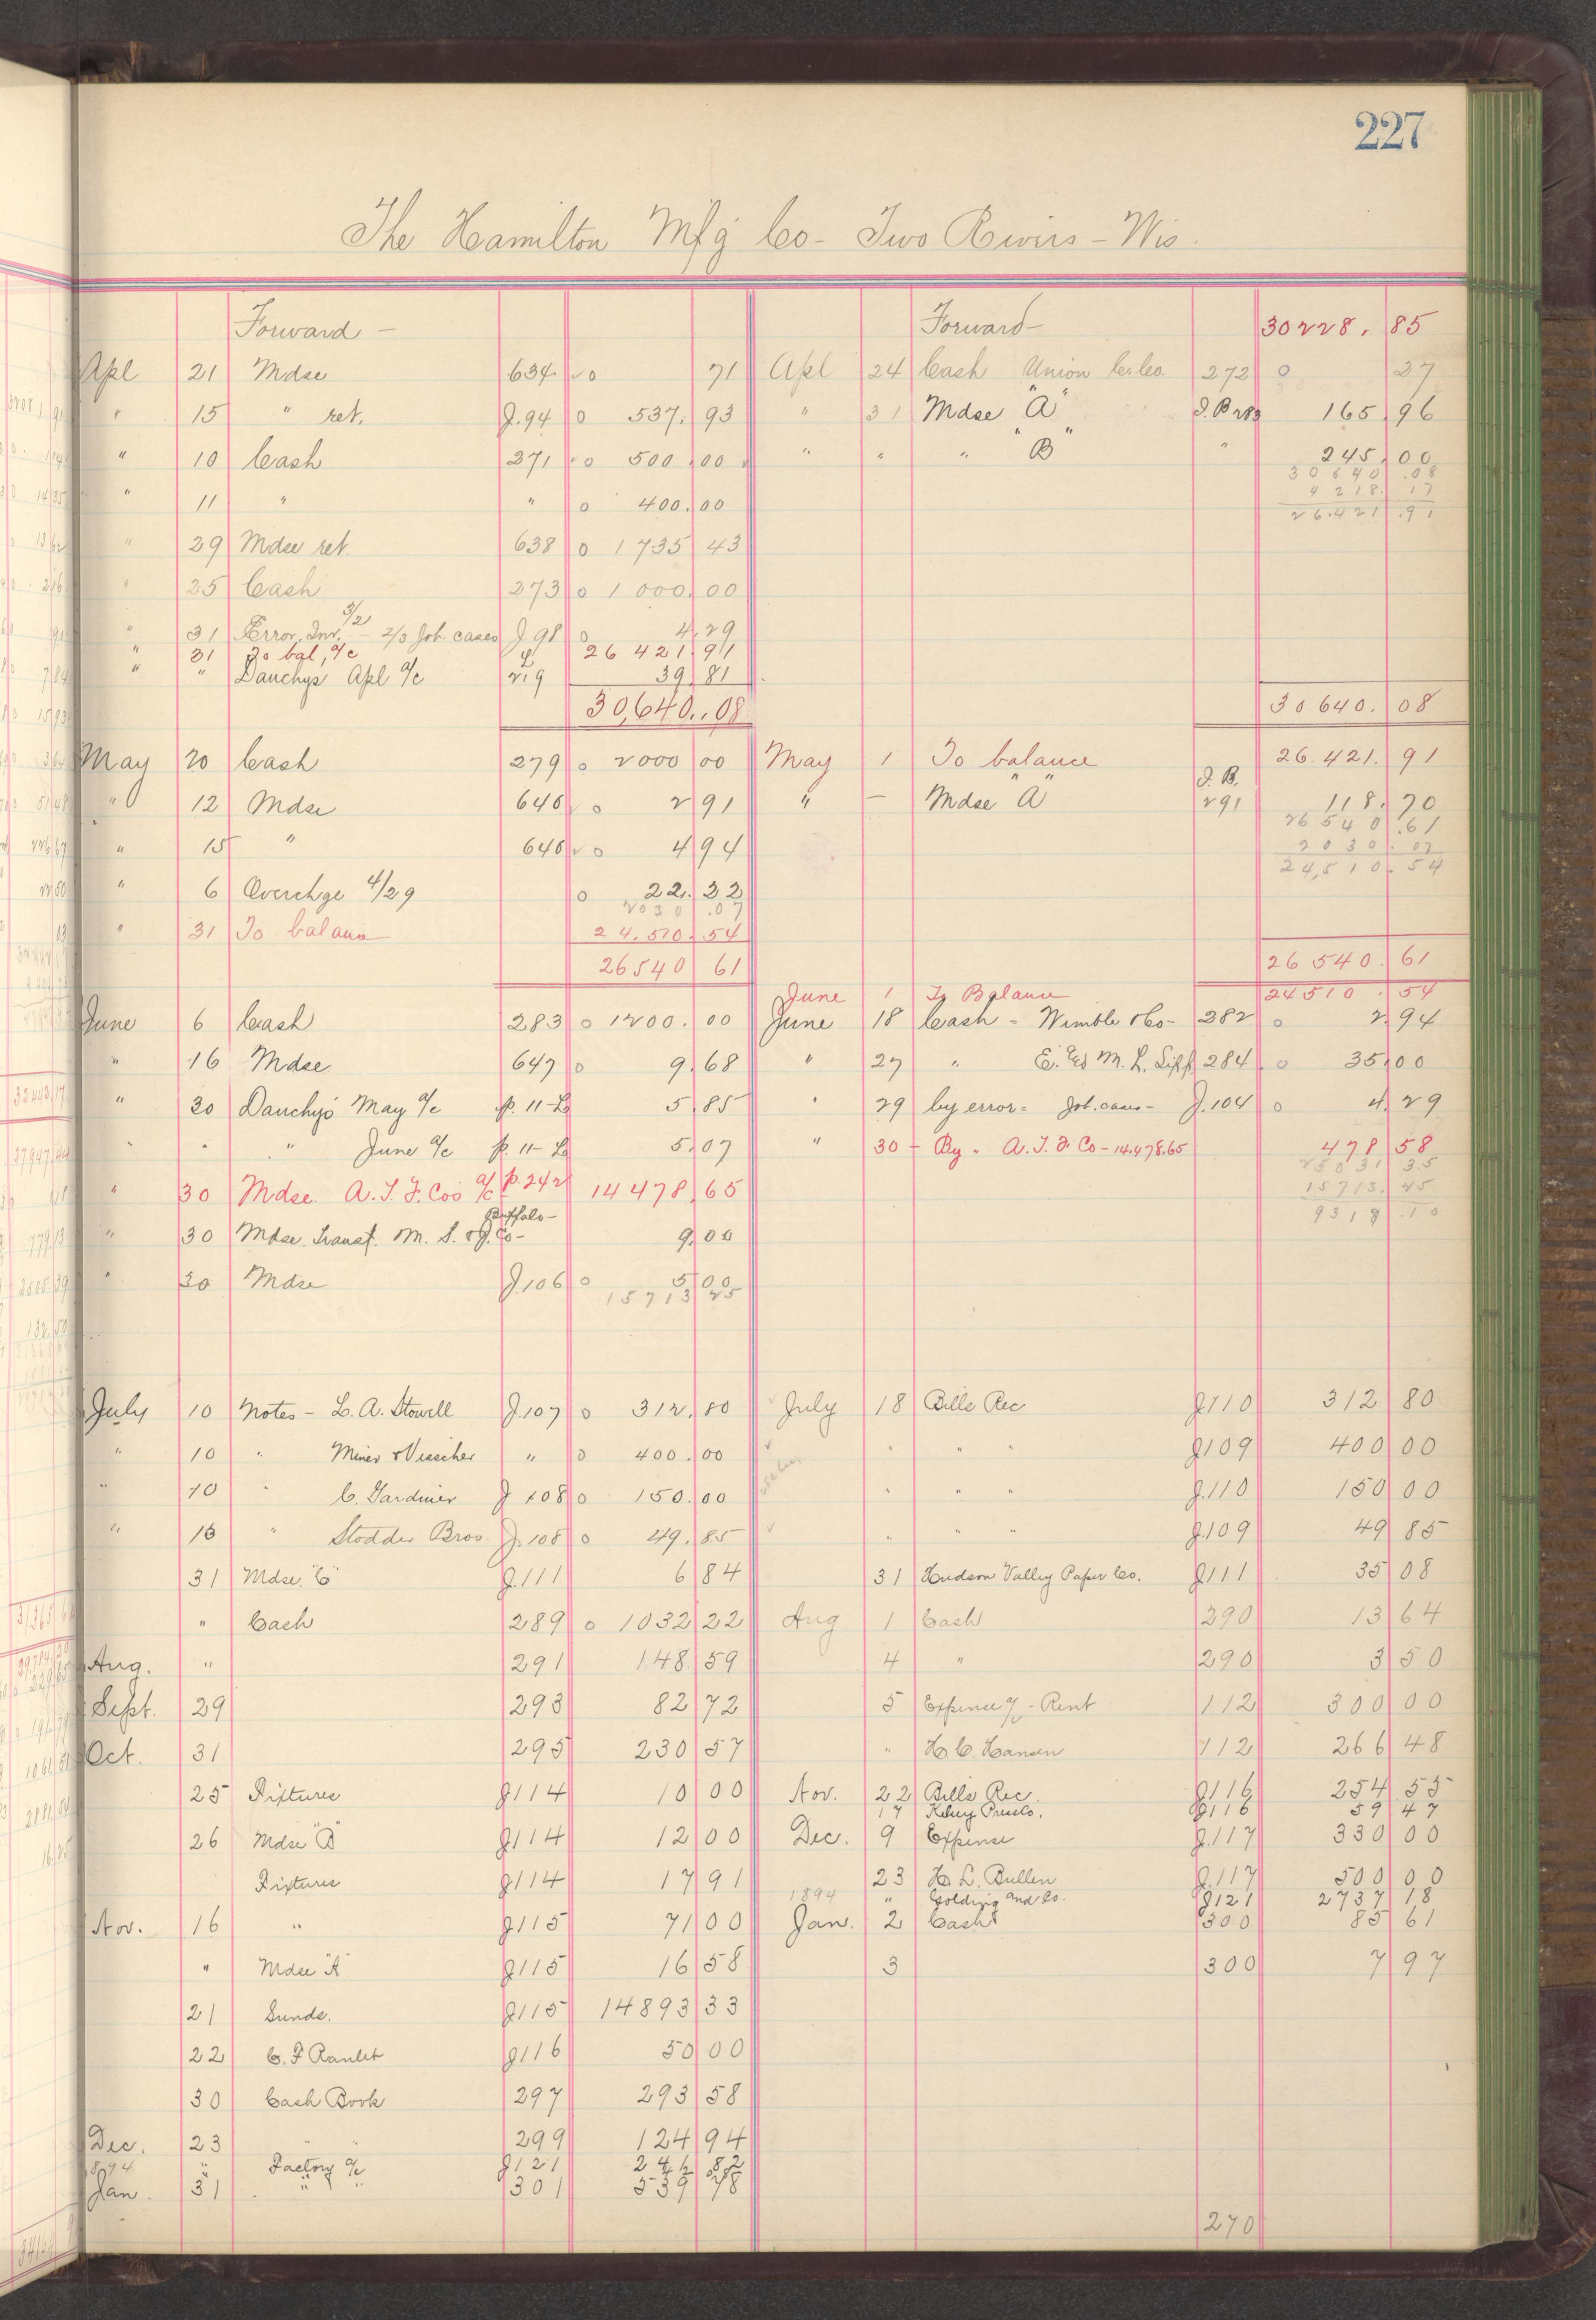 227
The Hamilton Mfg Co - Two Rivers - Wis.
Forward -
Apl 21 Mdse 634 o 71
" 15 " ret. J.94 o 537.93
" 10 Cash 271 o 500.00
" 11 " " o 400.00
" 29 Mdse ret. 638 o 1735 43
" 25 Cash 273 o 1000.00
" 31 Error. Inv. 3/2 - 2/3 Job cases J.98 o 4.29
" 31 To bal, a/c 26 421.91
" " Danchys Apl a/c 219 39.81
30,640.08
May 20 Cash 279 o 2000 00
" 12 Mdse 646 o 2 91
" 15 " 646 o 4 94
" 6 Overchge 4/29 o 22.22
2030.07
" 31 To balance 24.510.54
26540 61
June 6 Cash 283 o 1200.00
" 16 Mdse 647 o 9.68
" 30 Danchys May a/c p. 11-L 5 85
" " " June a/c p. 11-L 5.07
" 30 Mdse. A.T.F. Cos a/c p. 242 14478.65
Buffalo -
" 30 Mdse. Transf. M. S. & J. Co - 9.00
" 30 Mdse J.106 o 5 00
July 10 Notes - L. A. Stowell J.107 o 312.80
" 10 " Miner & Visscher " o 400.00
" 10 " C. Gardiner J 108 o 150.00
" 18 " Stodder Bros. J.108 o 49.85
31 Mdse. "C" J.111 6 84
" Cash 289 o 1032 22
Aug. " 291 148 59
Sept. 29 293 82 72
Oct. 31 295 230 57
25 Fixtures J114 10 00
26 Mdse "B" J114 12 00
Fixtures J114 17 91
Nov. 16 " J115 71 00
" Mdse "A" J115 16 58
21 Sunds. J115 14893 33
22 C. F Ranlet J116 50 00
30 Cash Book 297 293 58
Dec. 23 " " 299 124 94
1894 " Factory a/c J121
Jan. 31 " " 301 539 78
Forward - 30228.85
Apl 24 Cash Union C. Co. 272 o 27
" 31 Mdse "A" J.B 283 165.96
" " " "B" " 245.00
30640.08
4218.17
26.421.91
30640.08
May 1 To balance 26.421.91
" - Mdse "A" J.B. 291 118.70
26540.61
2030.07
24,510.54
26540.61
June 1 To Balance 24510.54
June 18 Cash - Wimble & Co - 282 o 2.94
" 27 " 284 o 35.00
" 29 by error = Job. cases - J.104 o 4.29
" 30 - By " A.T.F. Co - 14.478.65 478 58
25031 35
15713.45
9318.10
July 18 Bills Rec J110 312 80
" " " J109 400 00
" " " J.110 150 00
" " " J.109 49 85
31 Hudson Valley Paper Co. J111 35 08
Aug 1 Cash 290 13 64
4 " 290 3 50
5 Expense a/c - Rent 112 300 00
" H. C. Hansen 112 266 48
Nov. 22 Bills Rec. J116 254 55
17 Kelsey Press Co. J116 59 47
Dec. 9 Expense J.117 330 00
23 H. L. Bullen J.117 500 00
1894 " Golding and Co. J121 2737 18
Jan. 2 Cash 300 85 61
3 300 7 97
270